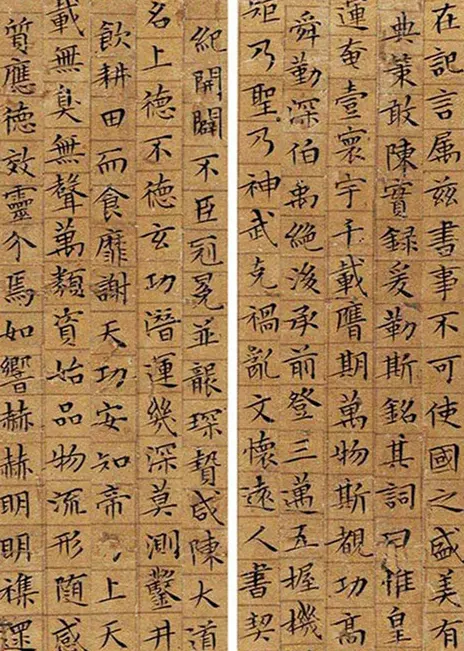 在記言属兹書事不可使國之盛美有
典策敢陳實録爰勒斯銘其詞曰惟皇
運奄壹寰宇千載膺期萬物斯覩功高
舜勤深伯禹絶後承前登三邁五握機
乃聖乃神武克禍亂文懷遠人書契
紀開闢不臣冠冕並襲琛贄咸陳大道
名上德不德玄功潛運幾深莫測鑿井
飲耕田而食靡謝天功安知帝上天
載無臭無聲萬類資始品物流形随感
質應德效靈介焉如響赫赫明明襍遝